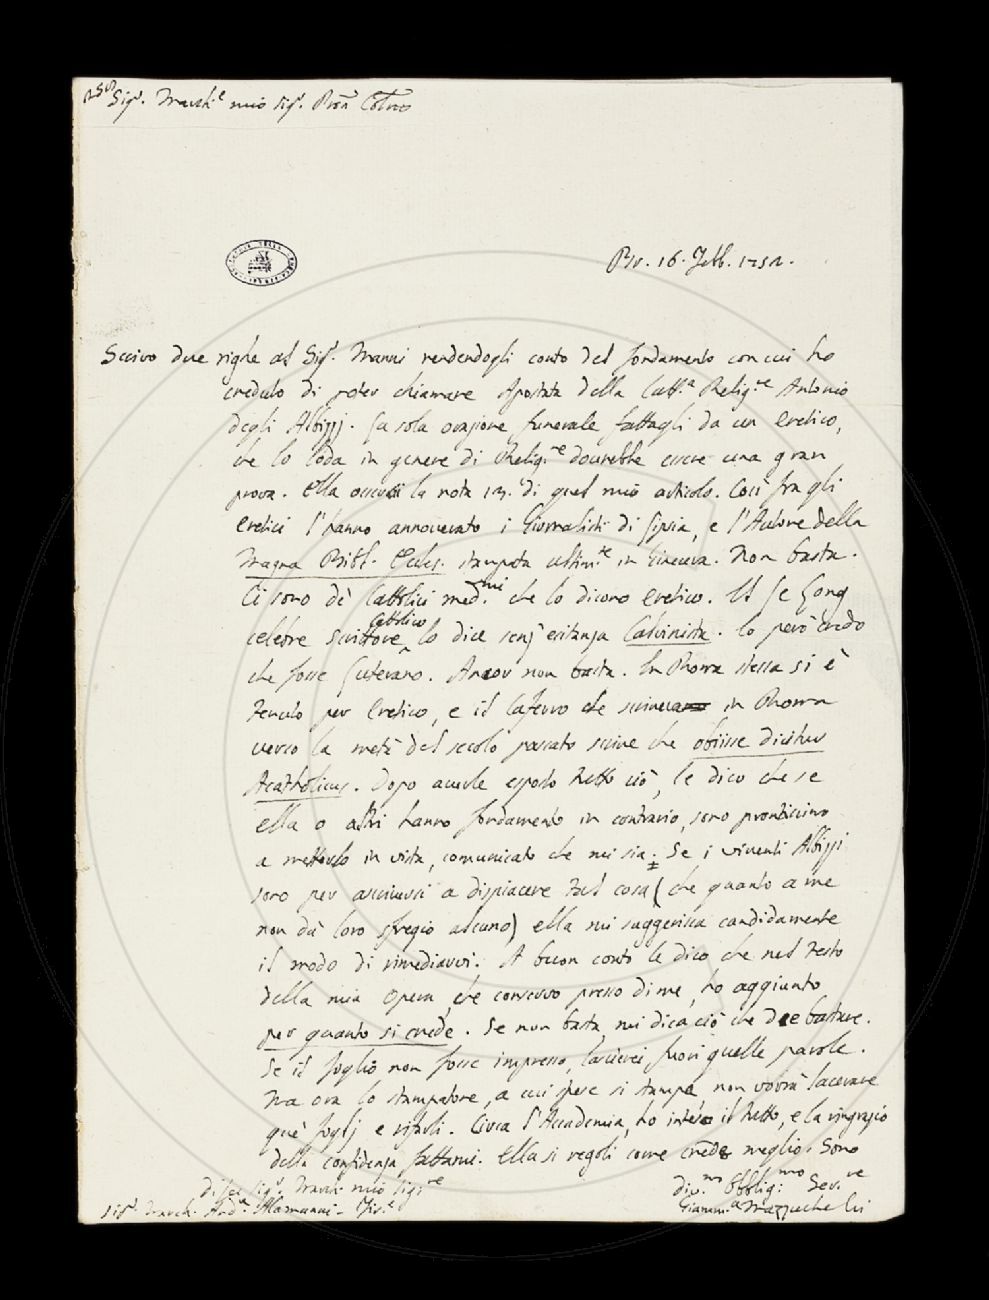 Sig.r March.e mio Sig.r Pron Colmo
Br. 16. Febb. 1752.
Scrivo due righe al Sig.r Manni rendendogli conto del fondamento con cui ho
creduto di poter chiamare Apostata della Catt.a Relig.ne Antonio
degli Albizzj. La sola orazione funerale fattagli da un Eretico,
che lo loda in genere di Relig.ne dovrebbe essere una gran
prova. Ella osservi la nota 13. di quel mio articolo. Così fra gli
Eretici l'hanno annoverato i Giornalisti di Lipsia, e l'Autore della
Magna Bibl. Eccles. stampata ultim.te in Ginevra. Non basta.
Ci sono de' Cattolici med.mi che lo dicono Eretico. Il Le Long
celebre Scrittore Cattolico lo dice senz'esitanza Calvinista. Io però credo
che fosse Luterano. Ancor non basta. In Roma stessa si è
tenuto per Eretico, e il Caferro che scrivea in Roma
verso la metà del secolo passato scrive che obiisse dicitur
Acatholicus. Dopo averle esposto tutto ciò, le dico che se
ella o altri hanno fondamento in contrario, sono prontissimo
a metterlo in vista, comunicato che mi sia. Se i viventi Albizzj
sono per ascriversi a dispiacere tal cosa (che quanto a me
non dà loro sfregio alcuno) ella mi suggerisca candidamente
il modo di rimediarvi. A buon conto le dico che nel testo
della mia Opera, che conservo presso di me, ho aggiunto
per quanto si crede. Se non basta, mi dica ciò che dee bastare.
Se il foglio non fosse impresso, lascierei fuori quelle parole.
Ma ora lo stampatore, a cui spese si stampa non vorrà lacerare
que' foglj e rifarli. Circa l'Accademia, ho inteso il tutto, e la ringrazio
della confidenza fattami. Ella si regoli come crede meglio. Sono
di Lei Sig.r March. mio Sig.re
Div.mo Obblig.mo Ser.re
Sig.r March. And.a Alamanni - Fir.e
Giamm.a Mazzuchelli